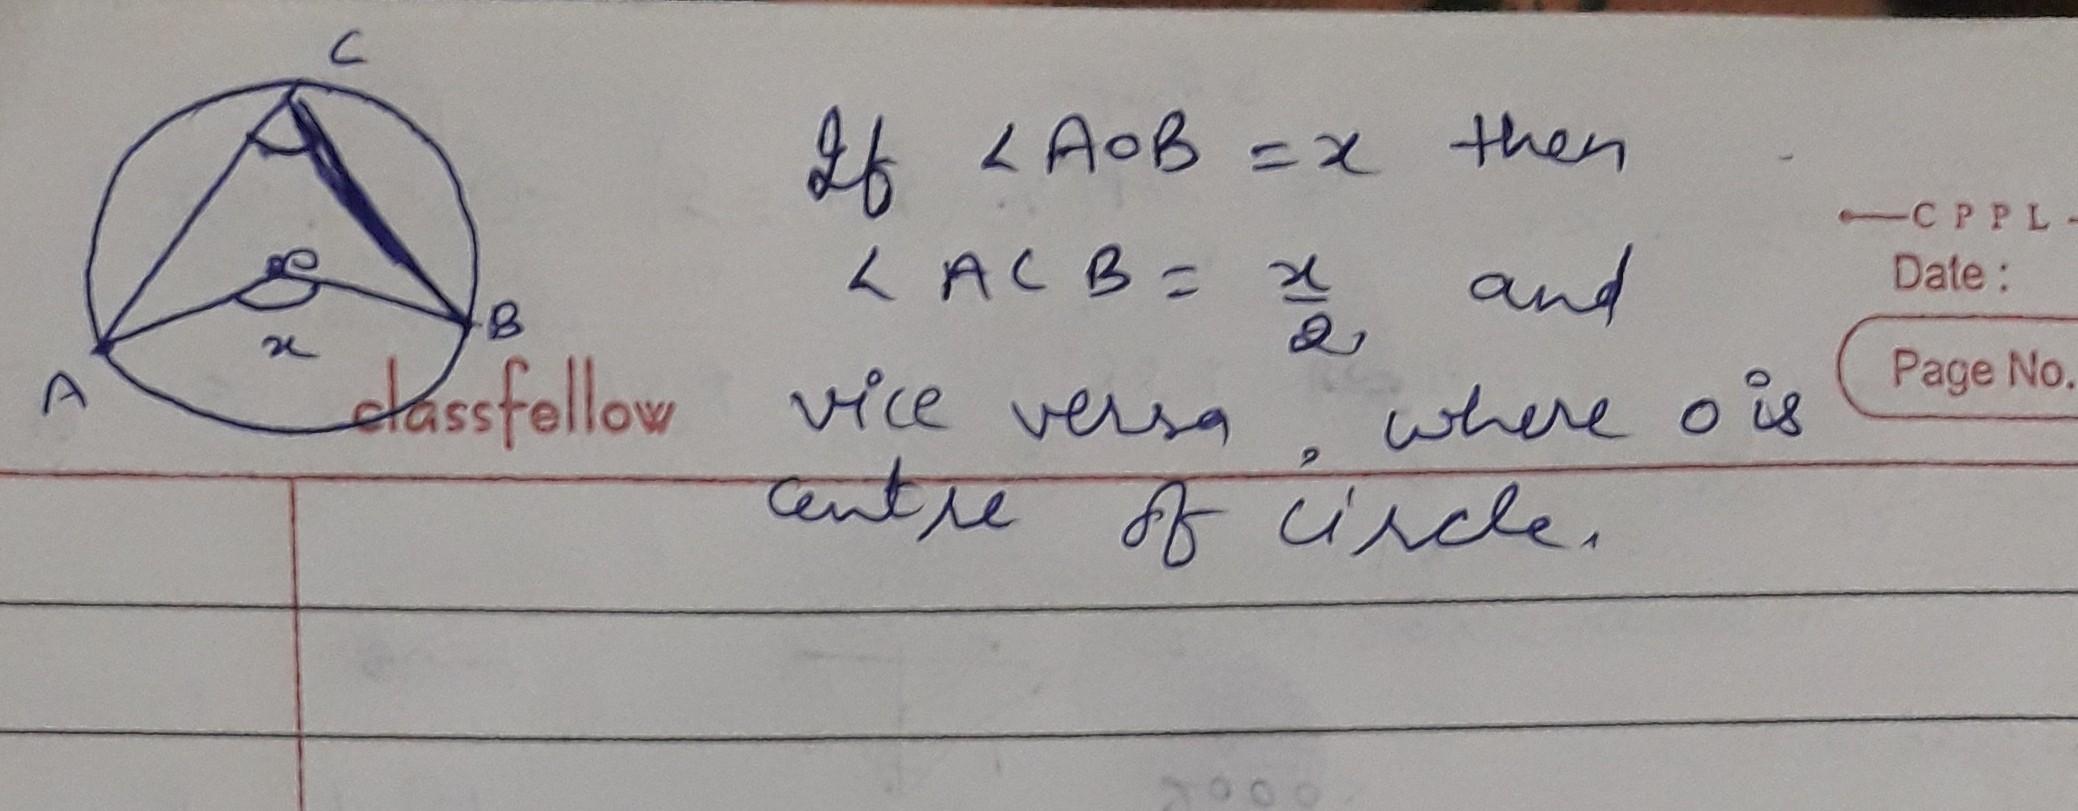 C
If ∠AOB = x then
CPPL
∠ACB = x/2 and
Date :
O
B
x
A
classfellow
vice versa, where O is
Page No.
centre of circle.